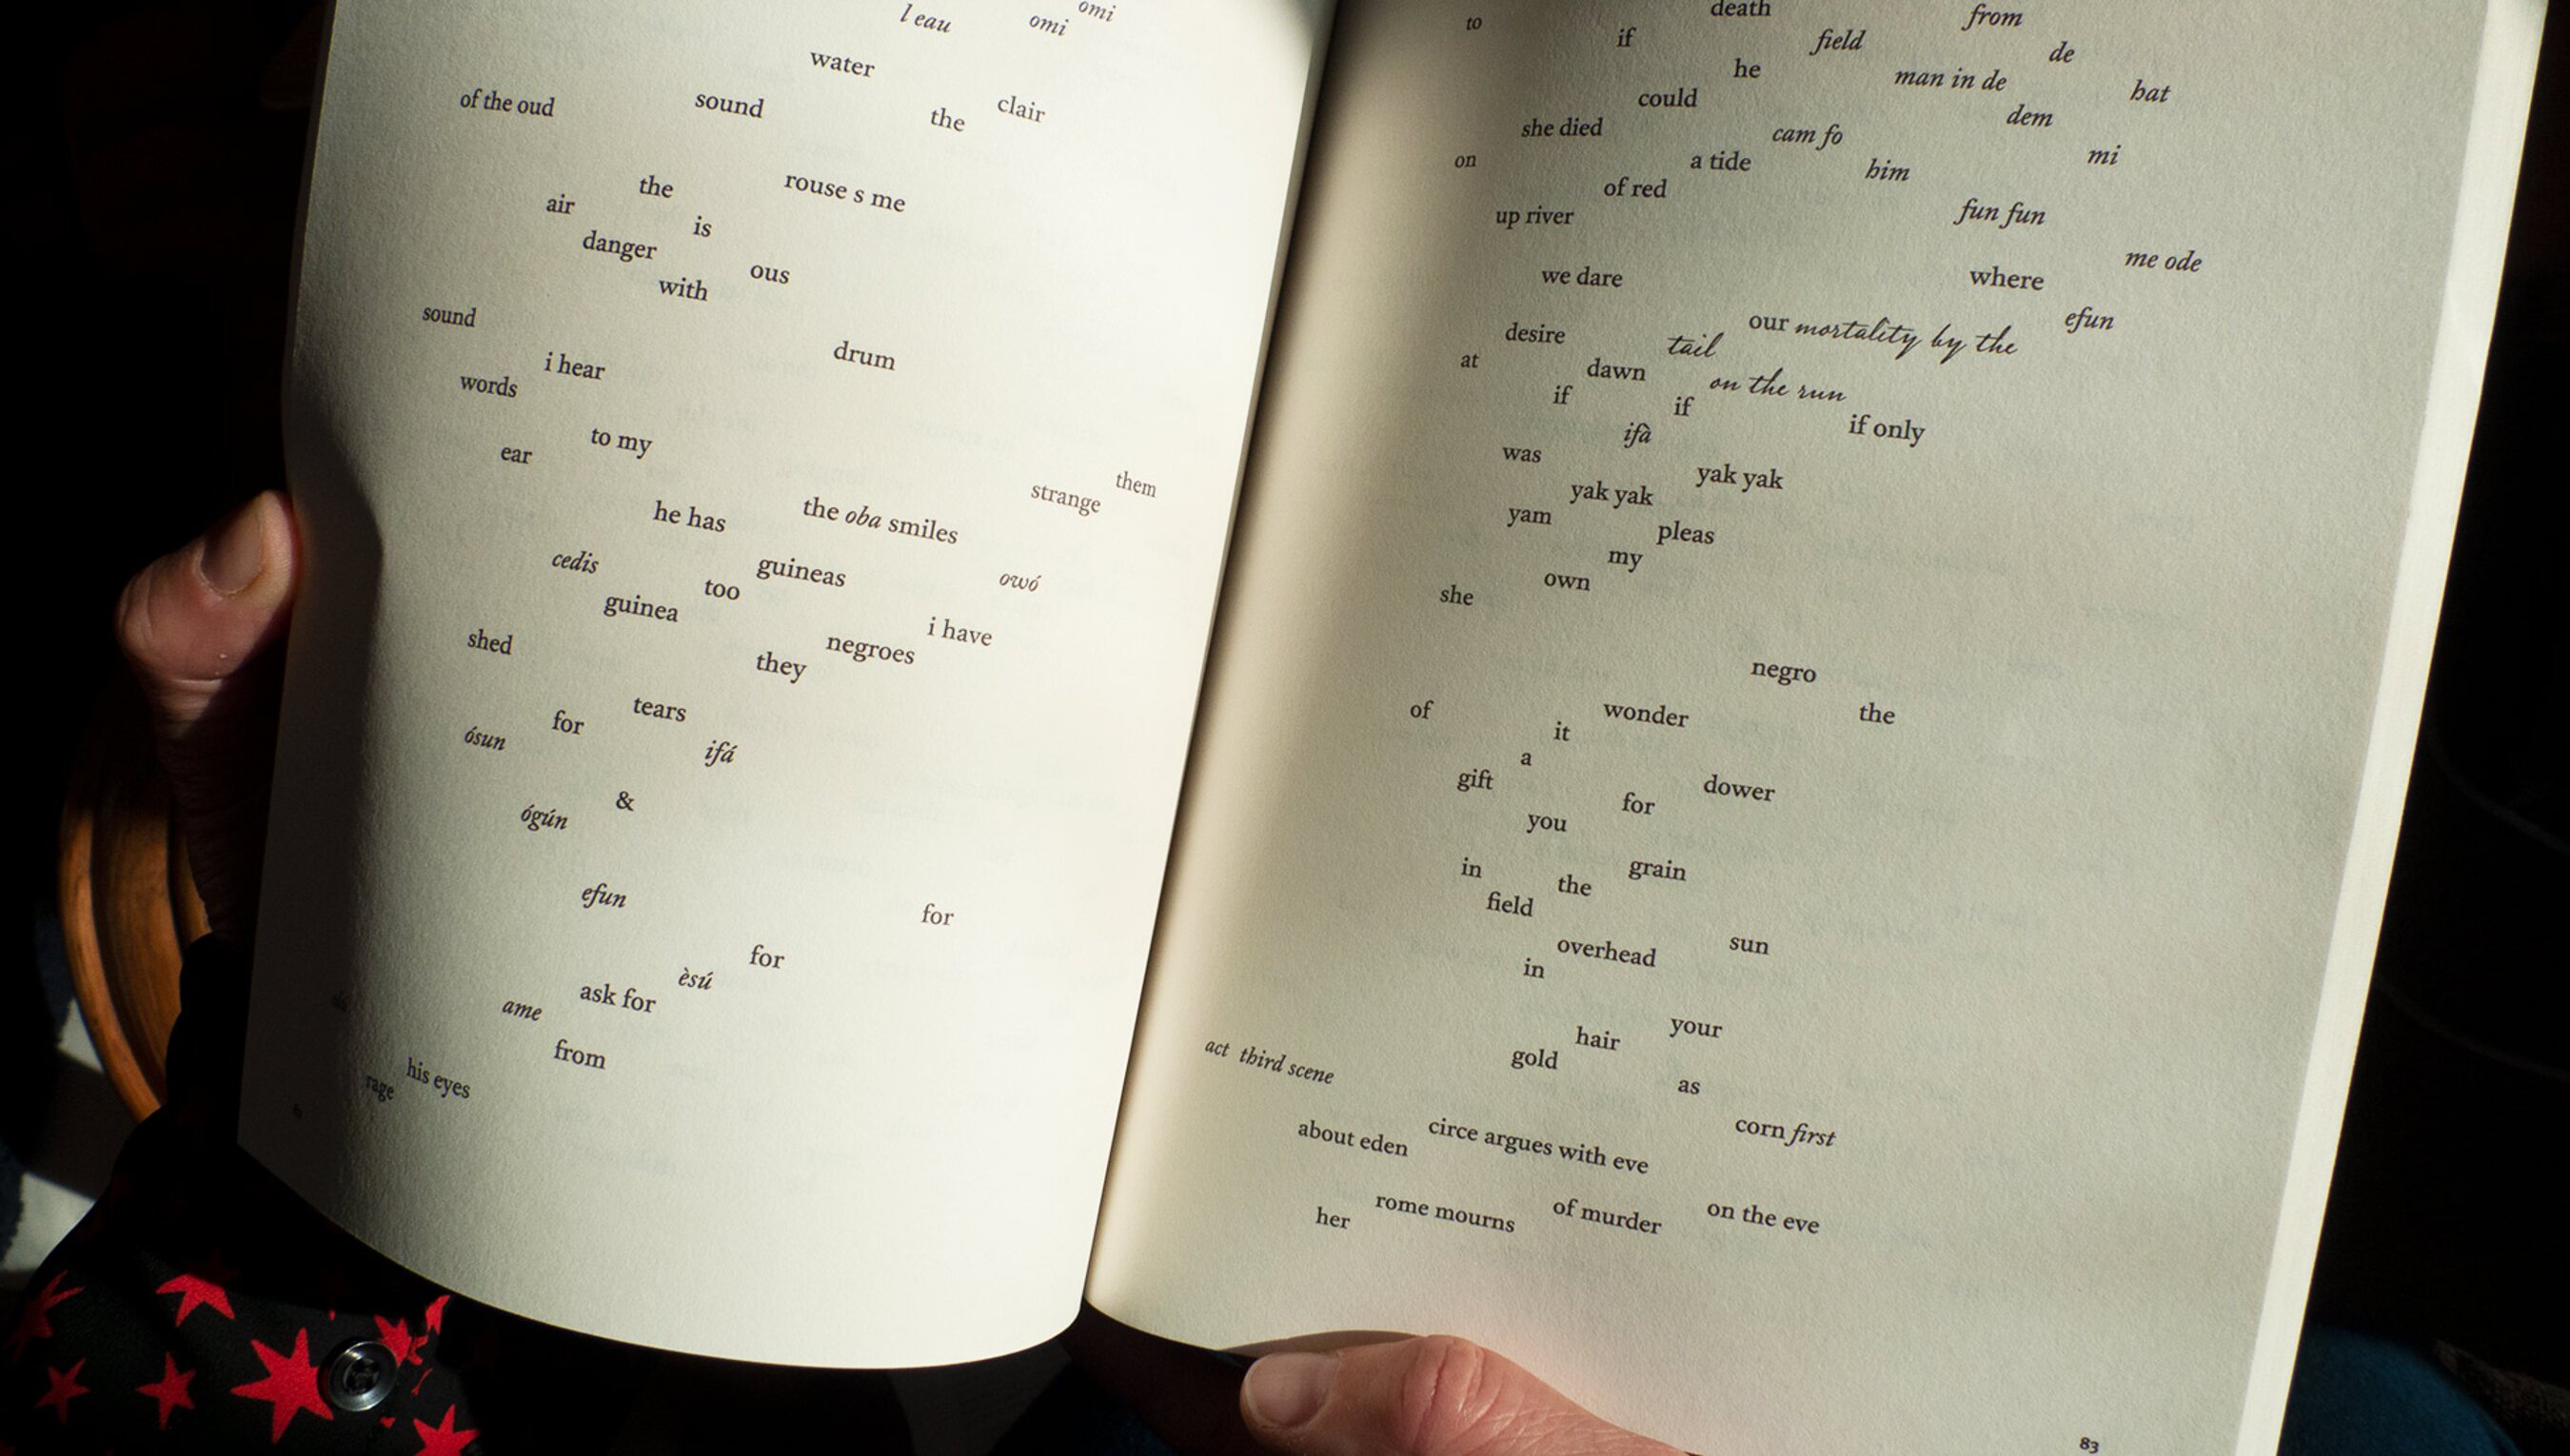 omi
l eau omi
water clair
of the oud sound the
the rouse s me
air is
danger ous
with
sound drum
i hear
words
to my
ear
strange them
he has the oba smiles
cedis guineas owó
guinea too i have
shed they negroes
tears
ósun for ifá
&
ógún
efun for
for
ask for èsú
ame
from
rage his eyes
death from
to if field de
he man in de bat
could dem
she died cam fo mi
on a tide him
of red fun fun
up river me ode
we dare where
our mortality by the efun
desire tail
at dawn on the run
if if if only
ifà
was yak yak
yak yak
yam pleas
my
own
she
negro
of wonder the
it
a
gift for dower
you
in the grain
field
overhead sun
in
hair your
gold as
act third scene
corn first
about eden circe argues with eve
her rome mourns of murder on the eve
83